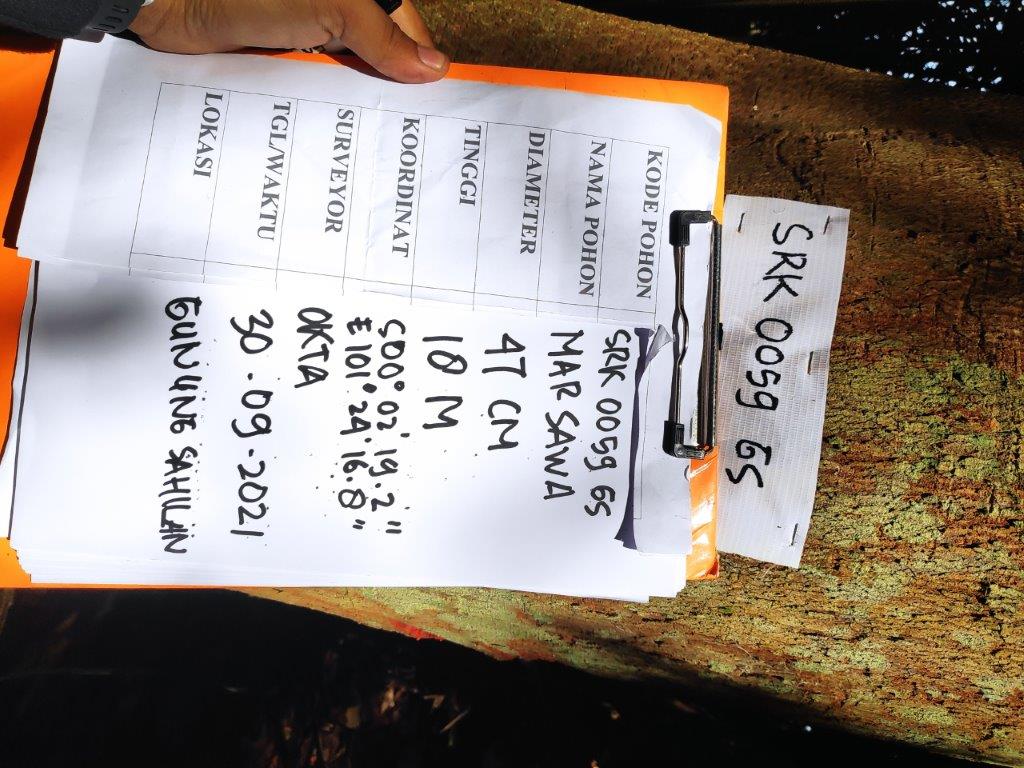 SRK 0059 GS
KODE POHON SRK 0059 GS
NAMA POHON MARSAWA
DIAMETER 47 CM
TINGGI 18 M
KOORDINAT S00° 02' 19.2"
E 101° 24' 16.8"
SURVEYOR OKTA
TGL/WAKTU 30.09.2021
LOKASI GUNUNG SAHILAN